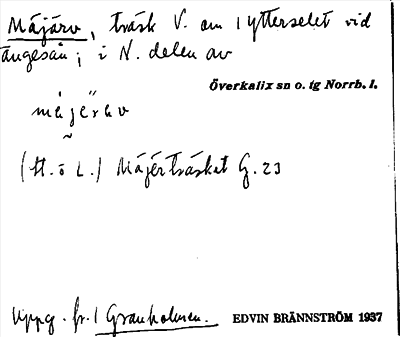 Måjärv, träsk V. om Ytterselet vid
Ängesån; i N. delen av
Överkalix sn o. tg Norrb. l.
(H. ö L.) Måjärvträsket G. 23
Uppg. fr. Granholmen. EDVIN BRÄNNSTRÖM 1937